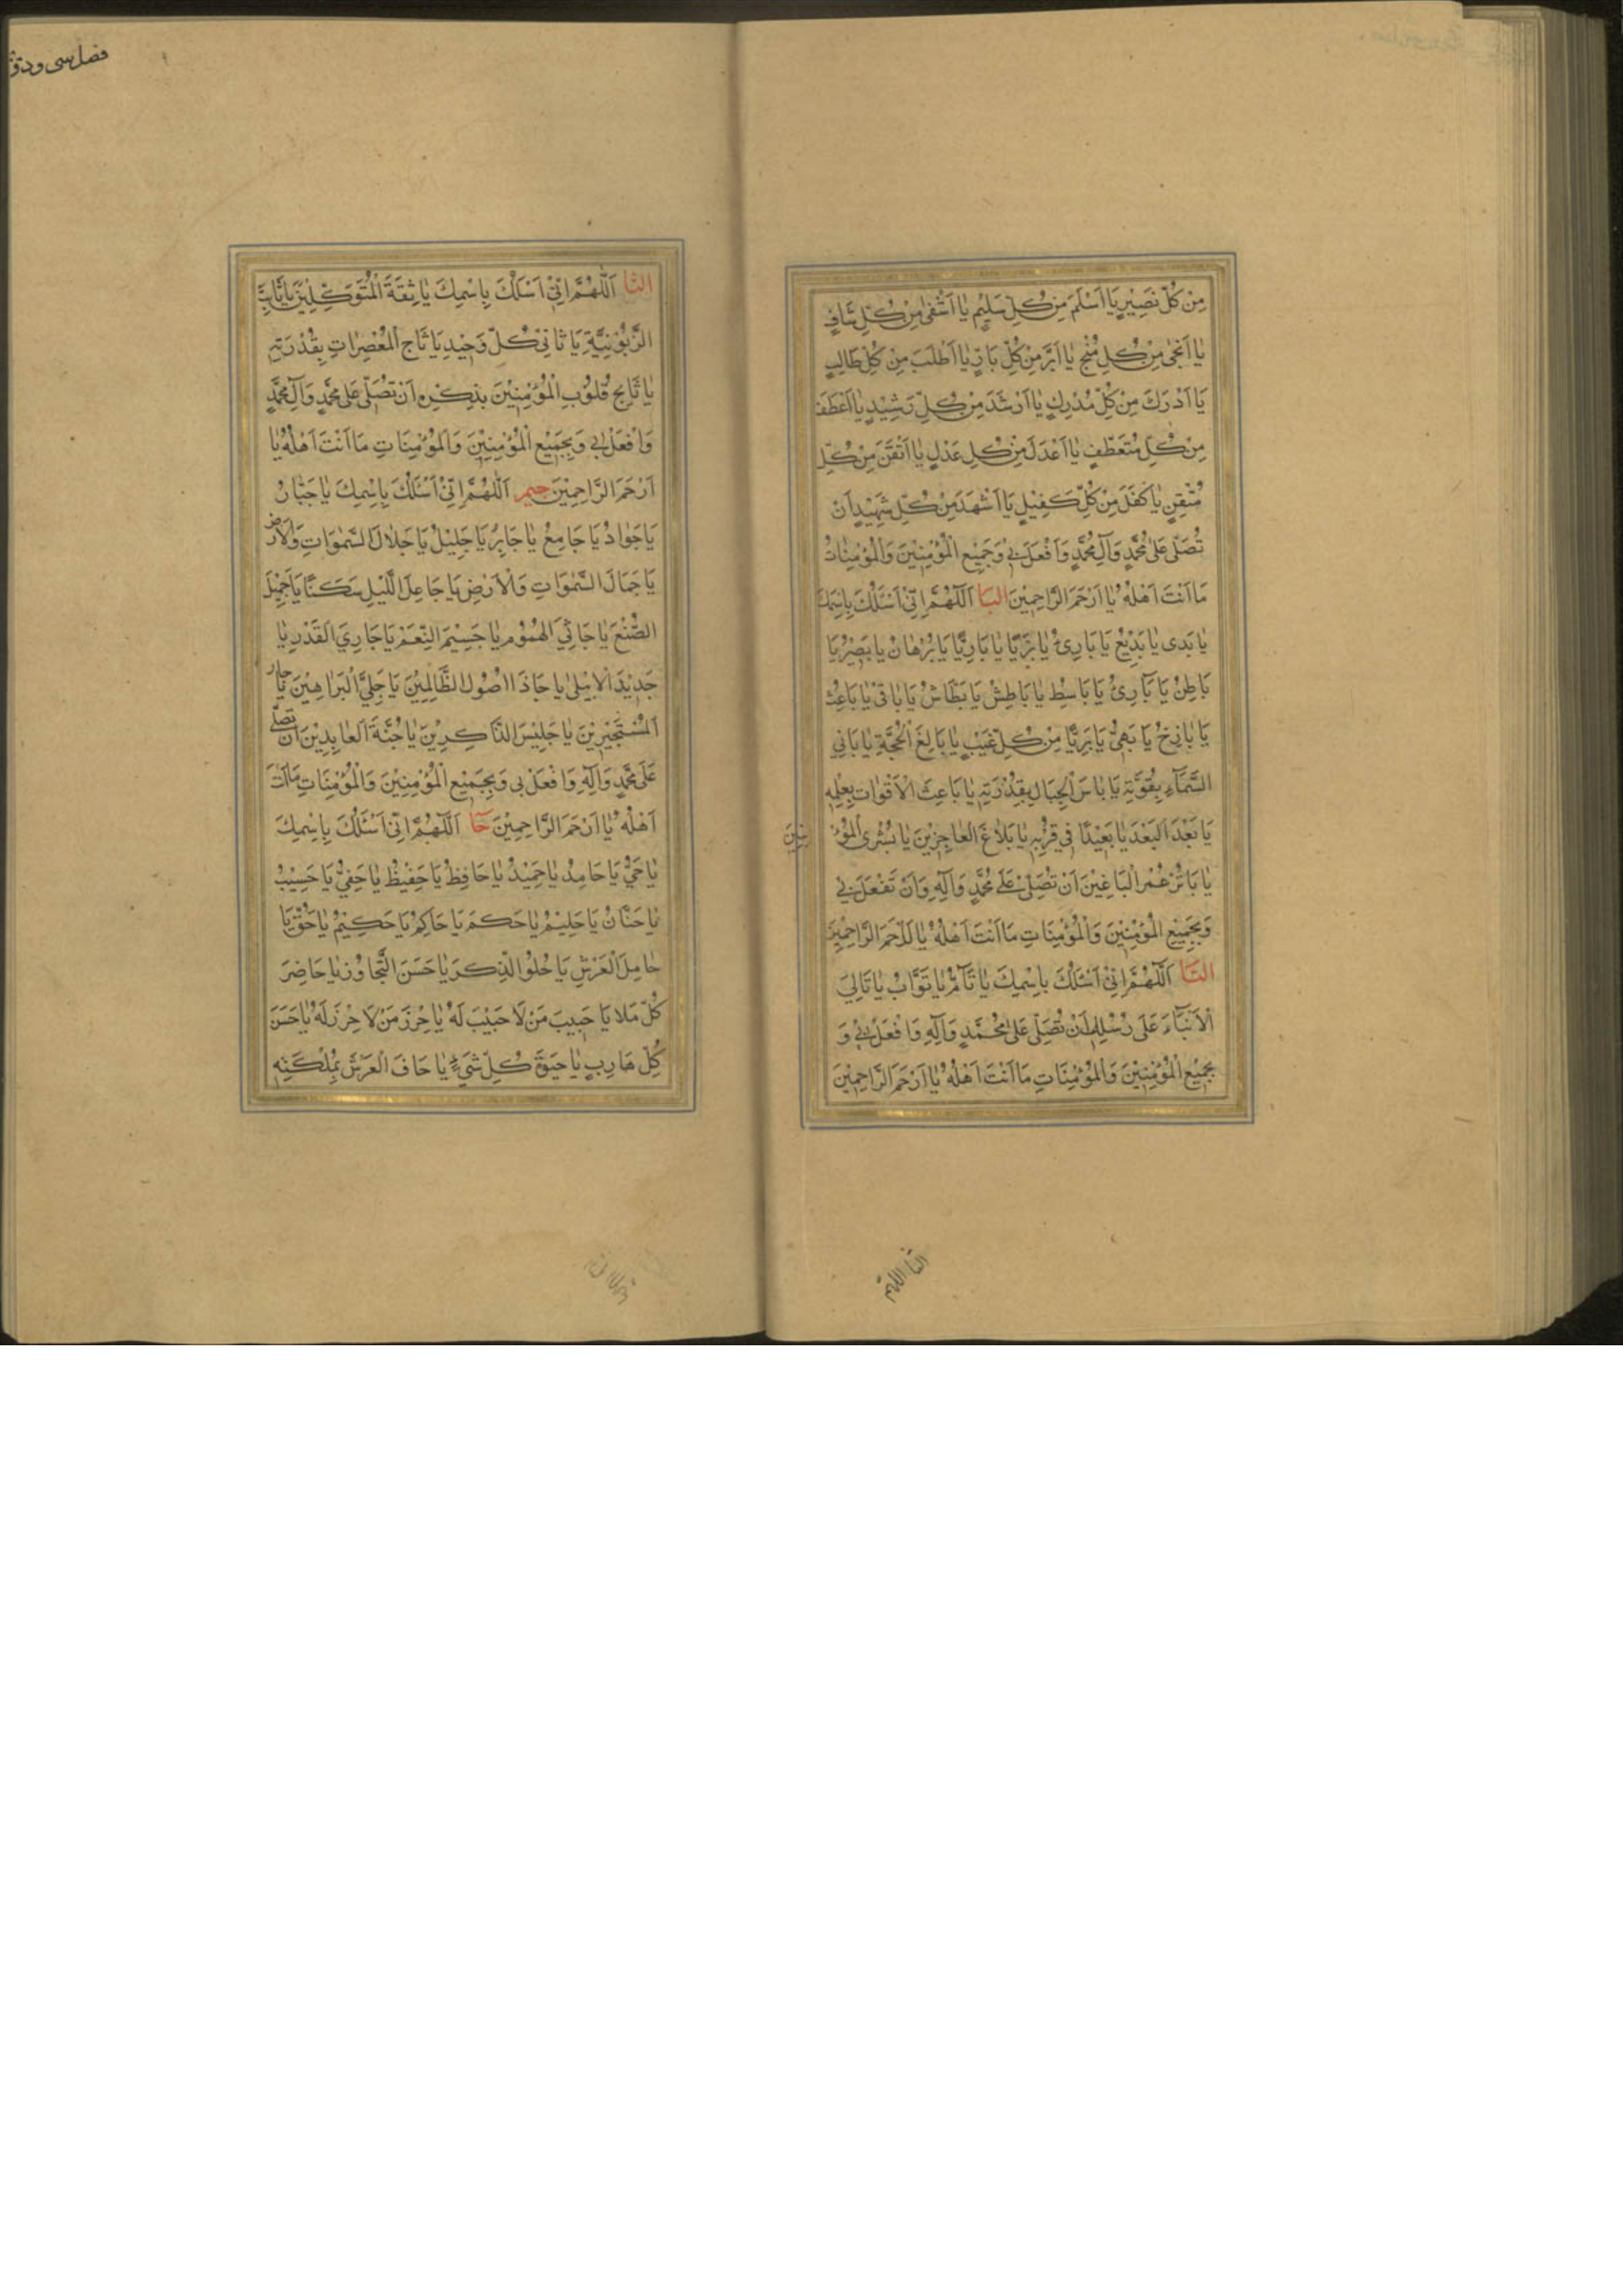 مِنْ كُلِّ نَصِيْرٍ يَا اَسْلَمَ مِنْ كُلِّ سَلِيْمٍ يٰا اَشْفٰى مِنْ كُلِّ شَافٍ
يٰا اَنْجٰى مِنْ كُلِّ مُنْجٍ يٰا اَبَرَّ مِنْ كُلِّ بَارٍّ يٰا اَطْلَبَ مِنْ كُلِّ طَالِبٍ
يَا اَدْرَكَ مِنْ كُلِّ مُدْرِكٍ يٰا اَرْشَدَ مِنْ كُلِّ رَشِيْدٍ يٰا اَعْطَفَ
مِنْ كُلِّ مُتَعَطِّفٍ يٰا اَعْدَلَ مِنْ كُلِّ عَدْلٍ يٰا اَتْقَنَ مِنْ كُلِّ
مُتْقِنٍ يٰا اَكْفَلَ مِنْ كُلِّ كَفِيْلٍ يَا اَشْهَدَ مِنْ كُلِّ شَهِيْدٍ اَنْ
تُصَلِّىَ عَلٰى مُحَمَّدٍ وَآلِ مُحَمَّدٍ وَافْعَلْ بِيْ وَجَمِيْعِ الْمُؤْمِنِيْنَ وَالْمُؤْمِنٰاتِ
مَا اَنْتَ اَهْلُهُ يٰا اَرْحَمَ الرَّاحِمِيْنَ البَا اَللّٰهُمَّ اِنِّيْ اَسْئَلُكَ بِاِسْمِكَ
يٰا بَدِى يٰا بَدِيْعُ يَا بَارِئُ يٰا بَرًّا يٰا بَارًّا يَا بُرْهٰانُ يٰا بَصِيْرُ يَا
بَاطِنُ يَا بَارِئُ يَا بَاسِطُ يٰا بَاطِشُ يَا بَطَّاشُ يٰا بٰاقِيْ يٰا بَاعِثُ
يَا بٰاذِخُ يَا بَهِىُّ يَا بَرِيًّا مِنْ كُلِّ عَيْبٍ يٰا بَالِغَ الْحُجَّةِ يٰا بَانِي
السَّمَآءِ بِقُوَّتِهِ يَا بٰاسَّ الْجِبَالِ بِقُدْرَتِهِ يٰا بَاعِثَ الْاَقْوٰاتِ بِعِلْمِهِ
يَا بَعْدَ الْبَعْدَ يٰا بَعِيْدًا فِي قُرْبِهِ يٰا بَلاٰغَ الْعٰاجِزِيْنَ يٰا بُشْرَى الْمُؤْمِنِيْنَ
يٰا بَاتِرَ عُمْرِ الْبَاغِيْنَ اَنْ تُصَلِّىَ عَلٰى مُحَمَّدٍ وَآلِهِ وَاَنْ تَفْعَلَ بِي
وَبِجَمِيْعِ الْمُؤْمِنِيْنَ وَالْمُؤْمِنَاتِ مَا اَنْتَ اَهْلُهُ يٰا اَرْحَمَ الرَّاحِمِيْنَ
التَا اَللّٰهُمَّ اِنِّيْ اَسْئَلُكَ بِاسْمِكَ يٰا تَآمُّ يٰا تَوَّابُ يٰا تَالِيَ
الْاَنْبَآءِ عَلٰى رُسُلِهِ اَنْ تُصَلِّىَ عَلٰى مُحَمَّدٍ وَآلِهِ وَافْعَلْ بِيْ وَ
بِجَمِيْعِ الْمُؤْمِنِيْنَ وَالْمُؤْمِنَاتِ مَا اَنْتَ اَهْلُهُ يٰا اَرْحَمَ الرَّاحِمِيْنَ
الثا اللهم
فضل سى
الثَّا اَللّٰهُمَّ اِنِّيْ اَسْئَلُكَ بِاِسْمِكَ يٰا ثِقَةَ الْمُتَوَكِّلِيْنَ يَا ثَابِتَ
الرَّبُوْبِيَّةِ يَا ثَانِيْ كُلِّ وَحِيْدٍ يَا ثَاجَّ الْمُعْصِرٰاتِ بِقُدْرَتِهِ
يٰا ثَالِجَ قُلُوْبِ الْمُؤْمِنِيْنَ بِذِكْرِهِ اَنْ تُصَلِّىَ عَلٰى مُحَمَّدٍ وَآلِ مُحَمَّدٍ
وَافْعَلْ بِي وَبِجَمِيْعِ الْمُؤْمِنِيْنَ وَالْمُؤْمِنَاتِ مَا اَنْتَ اَهْلُهُ يٰا
اَرْحَمَ الرَّاحِمِيْنَ جيم اَللّٰهُمَّ اِنِّيْ اَسْئَلُكَ بِاِسْمِكَ يٰا جَبَّارُ
يَا جَوٰادُ يَا جَامِعُ يٰا جَابِرُ يَا جَلِيْلُ يَا جَلاٰلَ السَّمٰوَاتِ وَالْاَرْضِ
يَا جَمَالَ السَّمٰوَاتِ وَالْاَرْضِ يَا جَاعِلَ اللَّيْلِ سَكَنًا يَا جَمِيْلَ
الصُّنْعِ يٰا جَاثِيَ الْهُمُوْمِ يٰا جَسِيْمَ النِّعَمِ يَا جَارِيَ الْقَدَرِ يٰا
جَدِيْدَ لَا يَبْلٰى يٰا جَاذَّ اُصُوْلِ الظَّالِمِيْنَ يَا جَلِيَّ الْبَرَاهِيْنَ يٰا جار
الْمُسْتَجِيْرِيْنَ يٰا جَلِيْسَ الذَّاكِرِيْنَ يٰا جُنَّةَ الْعٰابِدِيْنَ اَنْ تُصَلِّيَ
عَلٰى مُحَمَّدٍ وَآلِهِ وَافْعَلْ بِي وَبِجَمِيْعِ الْمُؤْمِنِيْنَ وَالْمُؤْمِنَاتِ مَا اَنْتَ
اَهْلُهُ يٰا اَرْحَمَ الرَّاحِمِيْنَ حَا اَللّٰهُمَّ اِنِّيْ اَسْئَلُكَ بِاِسْمِكَ
يٰا حَيُّ يَا حَامِدُ يٰا حَمِيْدُ يٰا حَافِظُ يَا حَفِيْظُ يٰا حَفِيُّ يَا حَسِيْبُ
يٰا حَنَّانُ يَا حَلِيْمُ يٰا حَكَمُ يَا حَاكِمُ يٰا حَكِيْمُ يٰا حَقُّ يَا
حٰامِلَ الْعَرْشِ يَا حُلْوَ الذِّكْرِ يٰا حَسَنَ التَّجَاوُزِ يٰا حَاضِرَ
كُلِّ مَلَا يَا حَبِيبَ مَنْ لَا حَبِيْبَ لَهُ يٰا حِرْزَ مَنْ لَا حِرْزَ لَهُ يٰا حَسَنَ
كُلِّ هَارِبٍ يٰا حَيٰوةَ كُلِّ شَيْءٍ يٰا حَافَ الْعَرْشِ بِمَلٰئِكَتِهِ